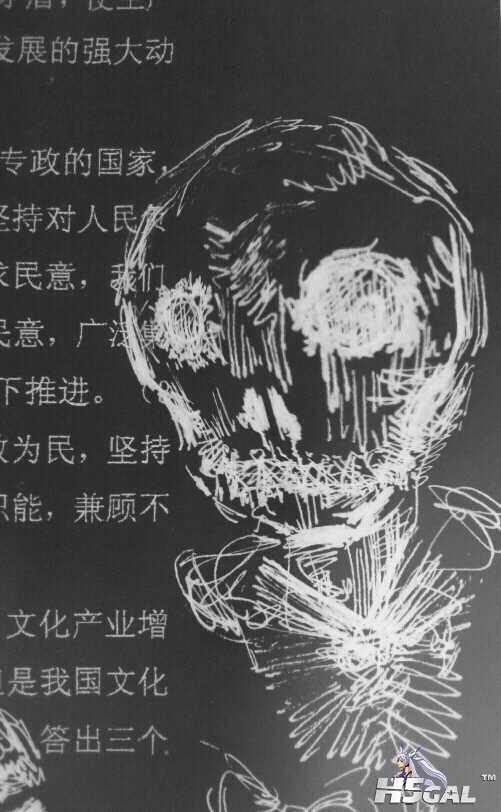 发展的强大动
专政的国家,
坚持对人民负
求民意，我们
民意，广泛集
下推进。（
政为民，坚持
职能，兼顾不
文化产业增
但是我国文化
答出三个
H5GAL™